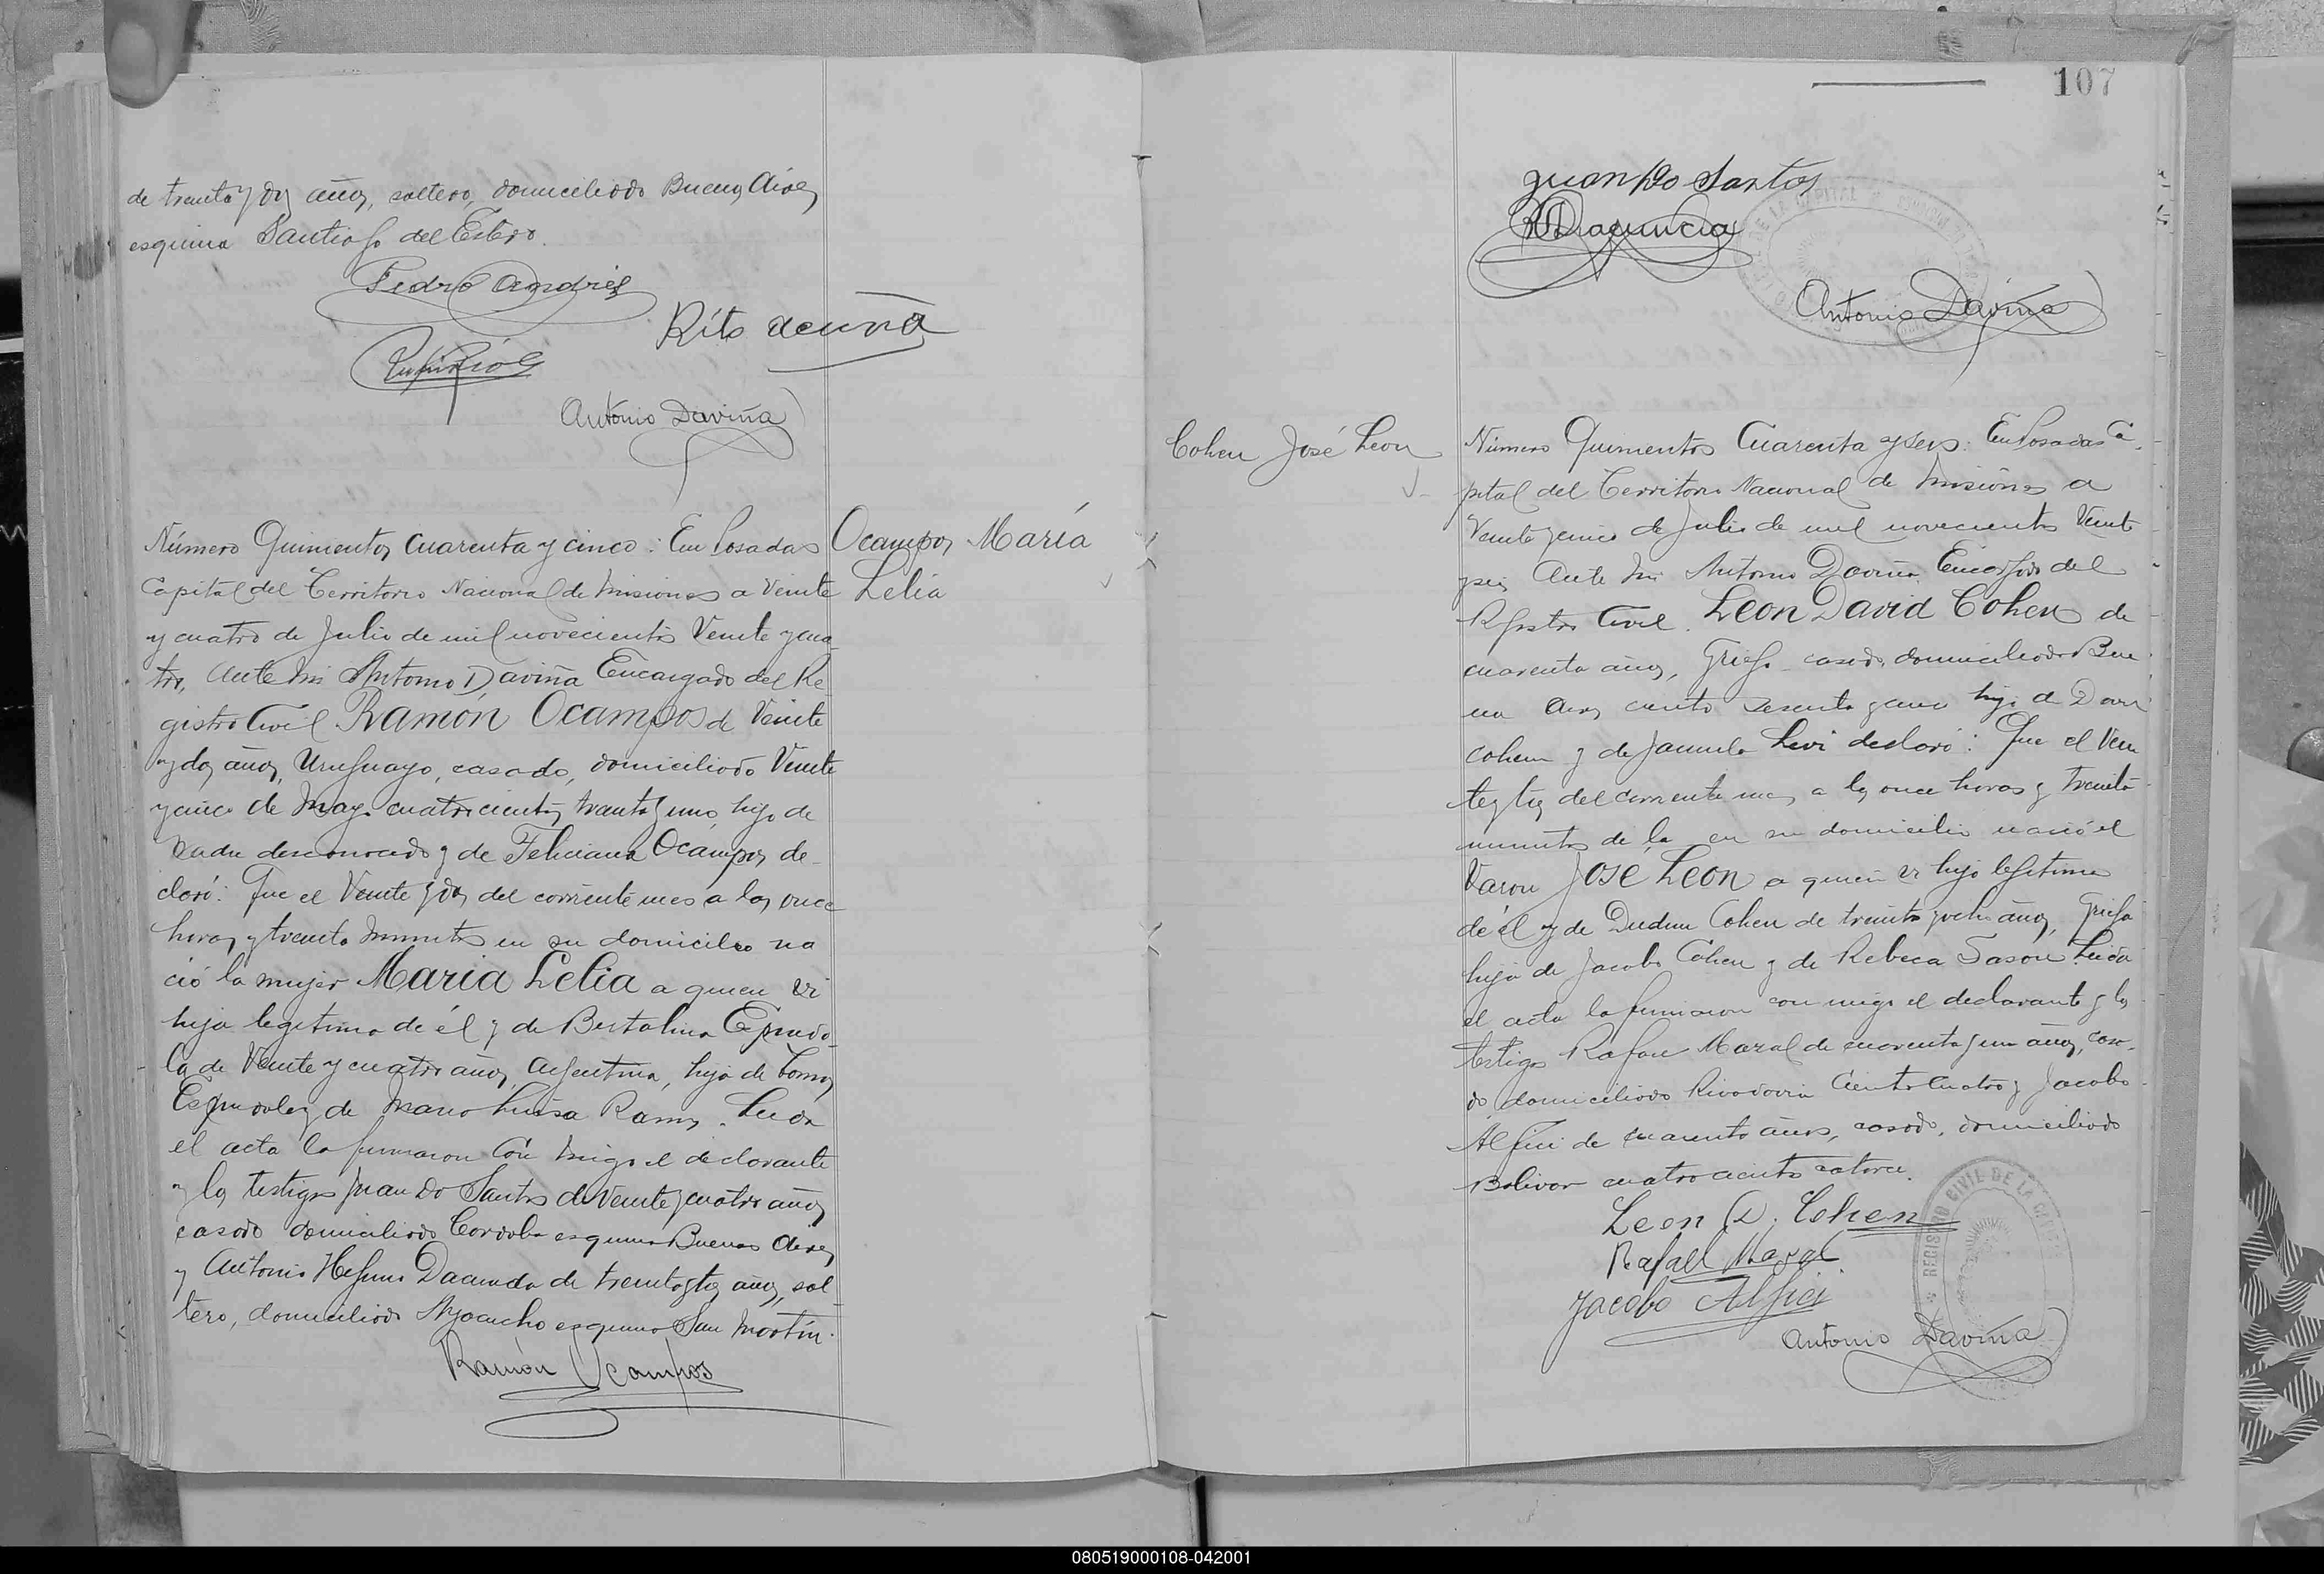 de treinta y dos años, soltero, domiciliado Buenos Aires
esquina Santiago del Estero.
Pedro Andrés
Rito acuña
Antonio Daviña
Número Quinientos Cuarenta y cinco: En Posadas
Capital del Territorio Nacional de Misiones a Veinte
y cuatro de Julio de mil novecientos Veinte y cua
tro, Ante mi Antonio Daviña Encargado del Re
gistro Civil Ramón Ocampos de Veinte
y dos años, Uruguayo, casado, domiciliado Veinte
y cinco de Mayo cuatrocientos treinta y uno, hijo de
Padre desconocido y de Feliciana Ocampos de-
claró: Que el Veinte y dos del corriente mes a las once
horas y treinta minutos en su domicilio na
ció la mujer María Lelia a quien vi
hija legítima de él y de Bertolina
la de Veinte y cuatro años, Argentina, hija de Tomas
y de Maria Luisa Ramos. Leida
el acta la firmaron Con migo el declarante
y los testigos Juan Do Santos de Veinte y cuatro años
casado domiciliado Cordoba esquina Buenos Aires
y Antonio de treinta y tres años, sol
tero, domiciliado Ayacucho esquina San Martín.
Ramón Ocampos
Ocampos María
Lelia
107
Juan Do Santos
Antonio Daviña
Cohen José Leon
Número Quinientos Cuarenta y seis: En Posadas Ca
pital del Territorio Nacional de Misiones a
Veinte y cinco de Julio de mil novecientos Veinte
Ante mi Antonio Daviña Encargado del
Registro Civil. Leon David Cohen de
cuarenta años, Griego casado, domiciliado Bue
nos Aires ciento sesenta y cinco hijo de David
Cohen y de Levi declaró: Que el Vein
te y tres del corriente mes a las once horas y treinta
minutos de la en su domicilio nació el
Varon José Leon a quien vi hijo legítimo
de él y de Cohen de treinta y ocho años, Griega
hija de Jacobo Cohen y de Rebeca Sason. Leida
el acta la firmaron con migo el declarante y los
testigos Rafael Mazal de cuarenta y un años, casa-
do domiciliado Rivadavia Ciento cuatro y Jacobo
Alfici de cuarenta años, casado, domiciliado
Bolivar cuatrocientos catorce.
Leon D. Cohen
Rafael Mazal
Jacobo Alfici
Antonio Daviña
REGISTRO CIVIL DE LA CAPITAL
080519000108-042001